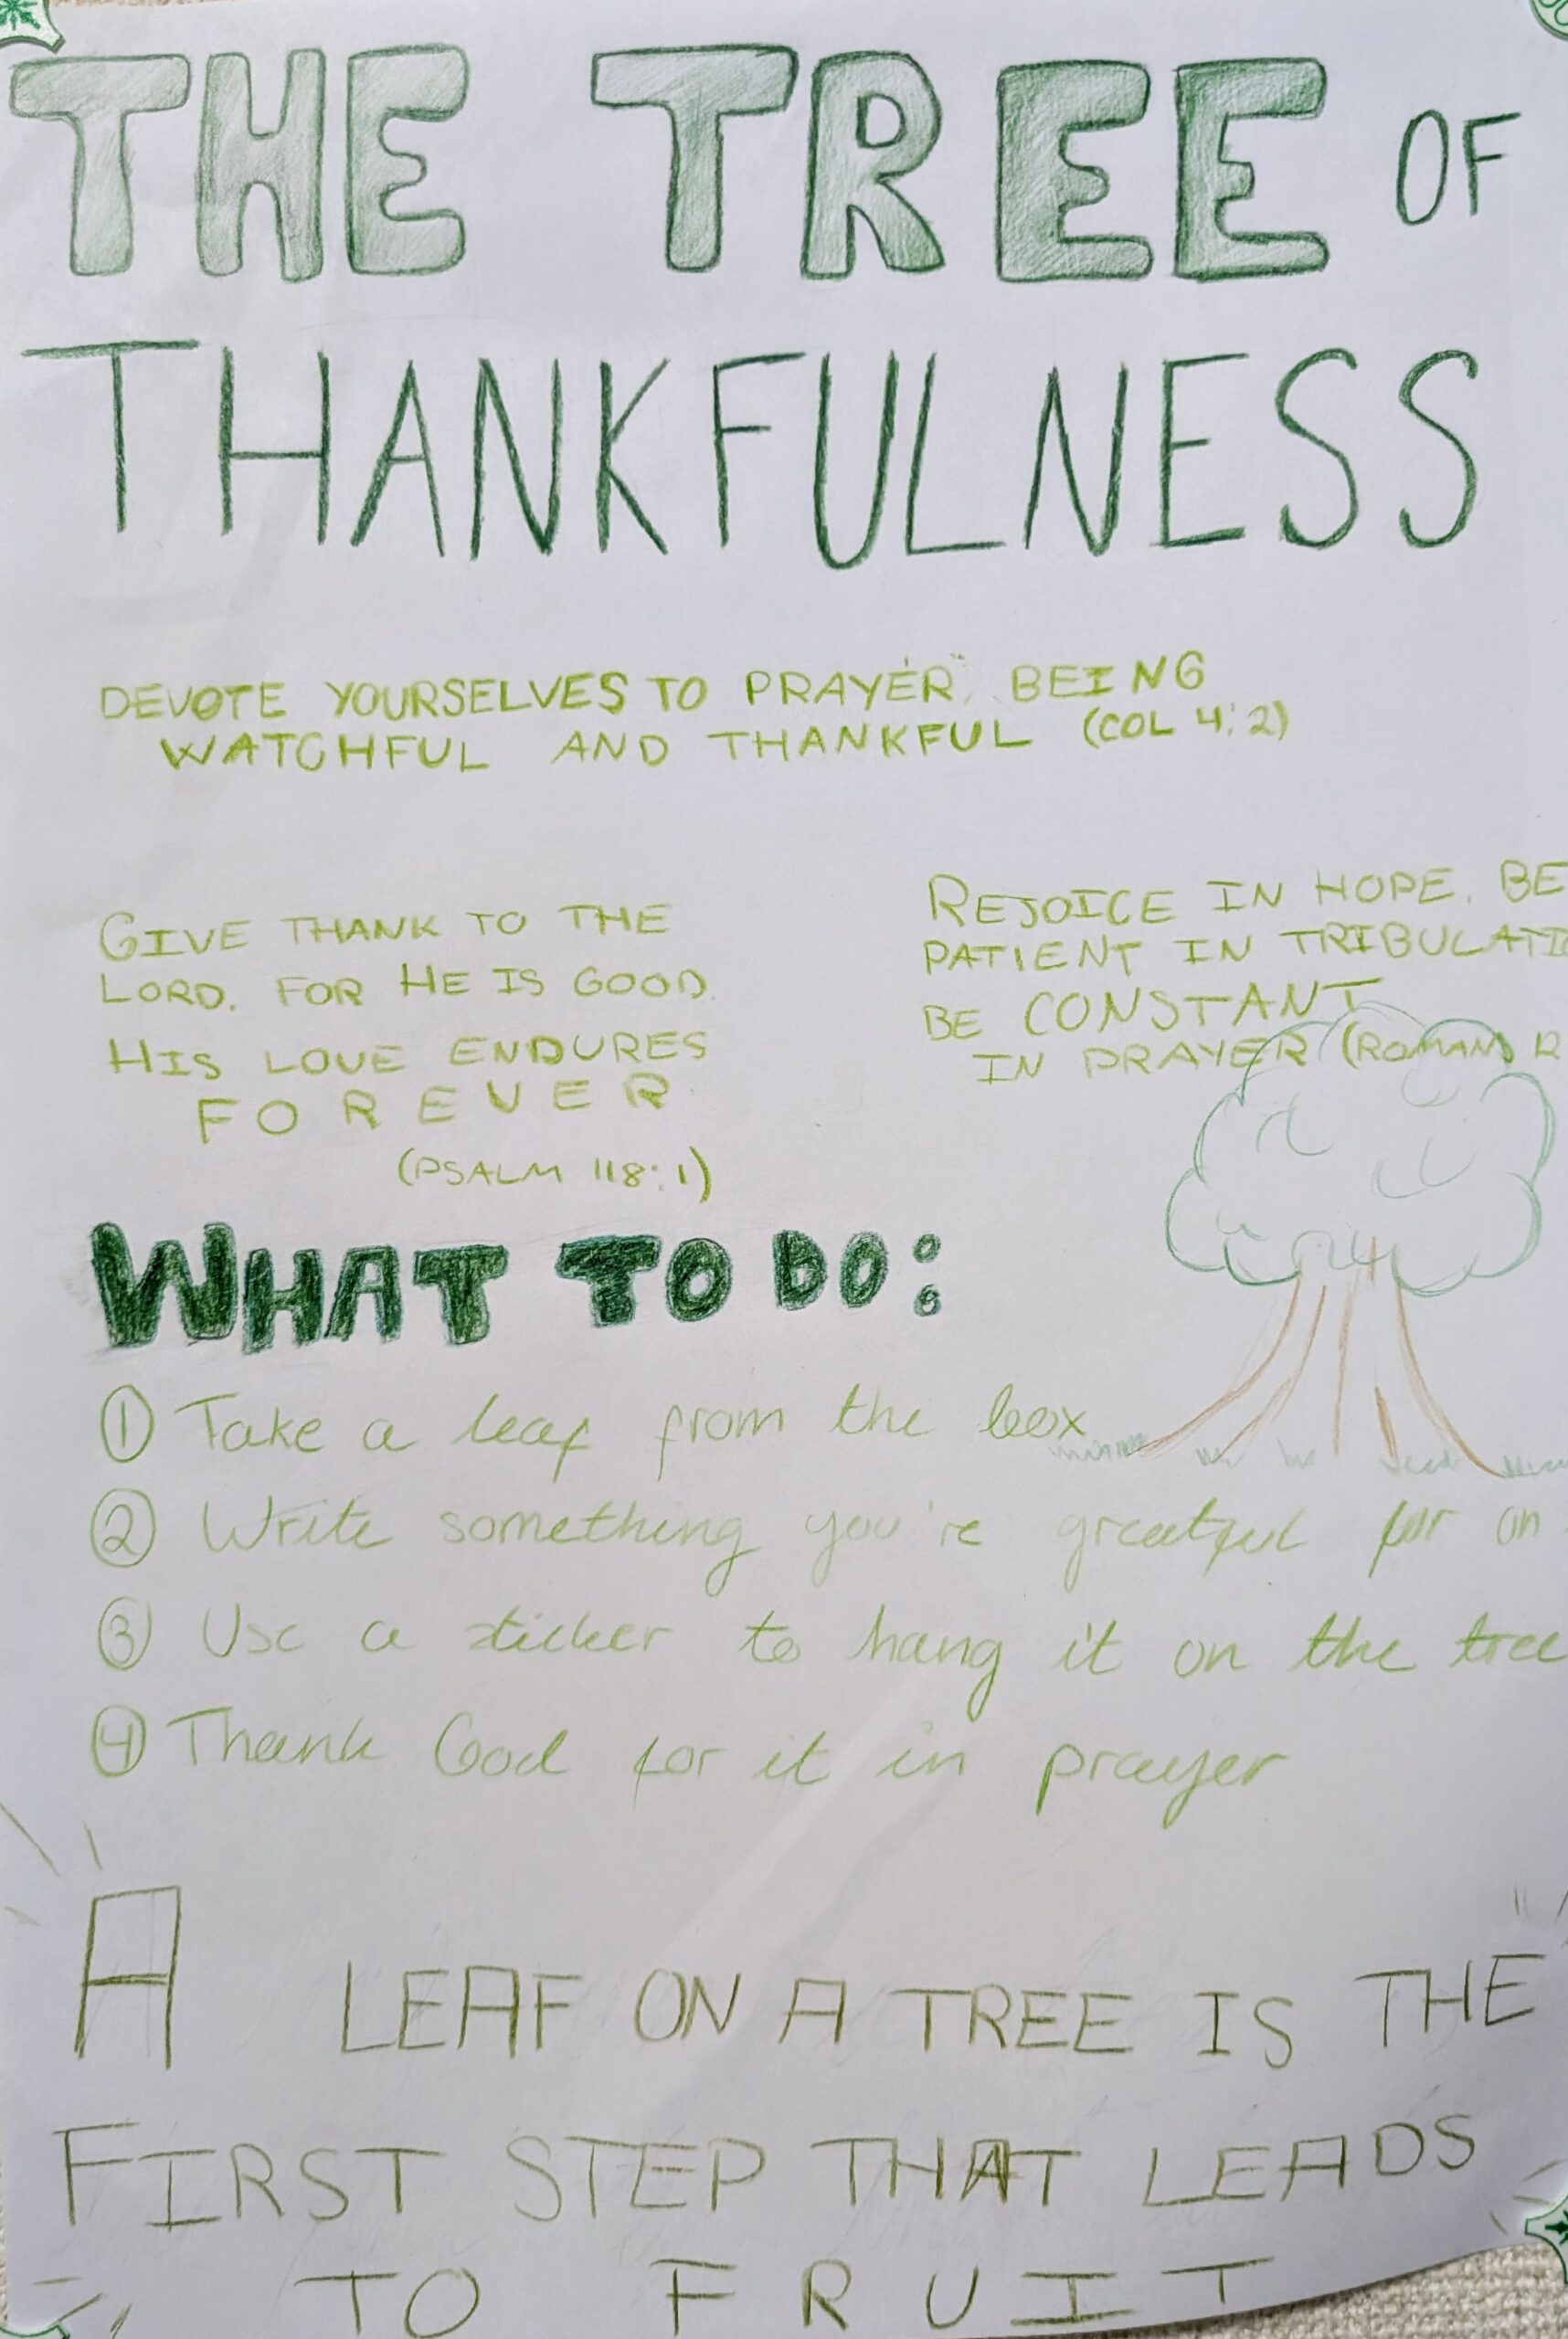 THE TREE OF
THANKFULNESS
DEVOTE YOURSELVES TO PRAYER, BEING
WATCHFUL AND THANKFUL (COL 4:2)
GIVE THANK TO THE
LORD, FOR HE IS GOOD.
HIS LOVE ENDURES
FOREVER
(PSALM 118:1)
REJOICE IN HOPE. BE
PATIENT IN TRIBULATI
BE CONSTANT
IN PRAYER (ROMANS 12
WHAT TO DO:
① Take a leaf from the box
② Write something you're greatful for on
③ Use a sticker to hang it on the tree
④ Thank God for it in prayer
A LEAF ON A TREE IS THE
FIRST STEP THAT LEADS
TO FRUIT